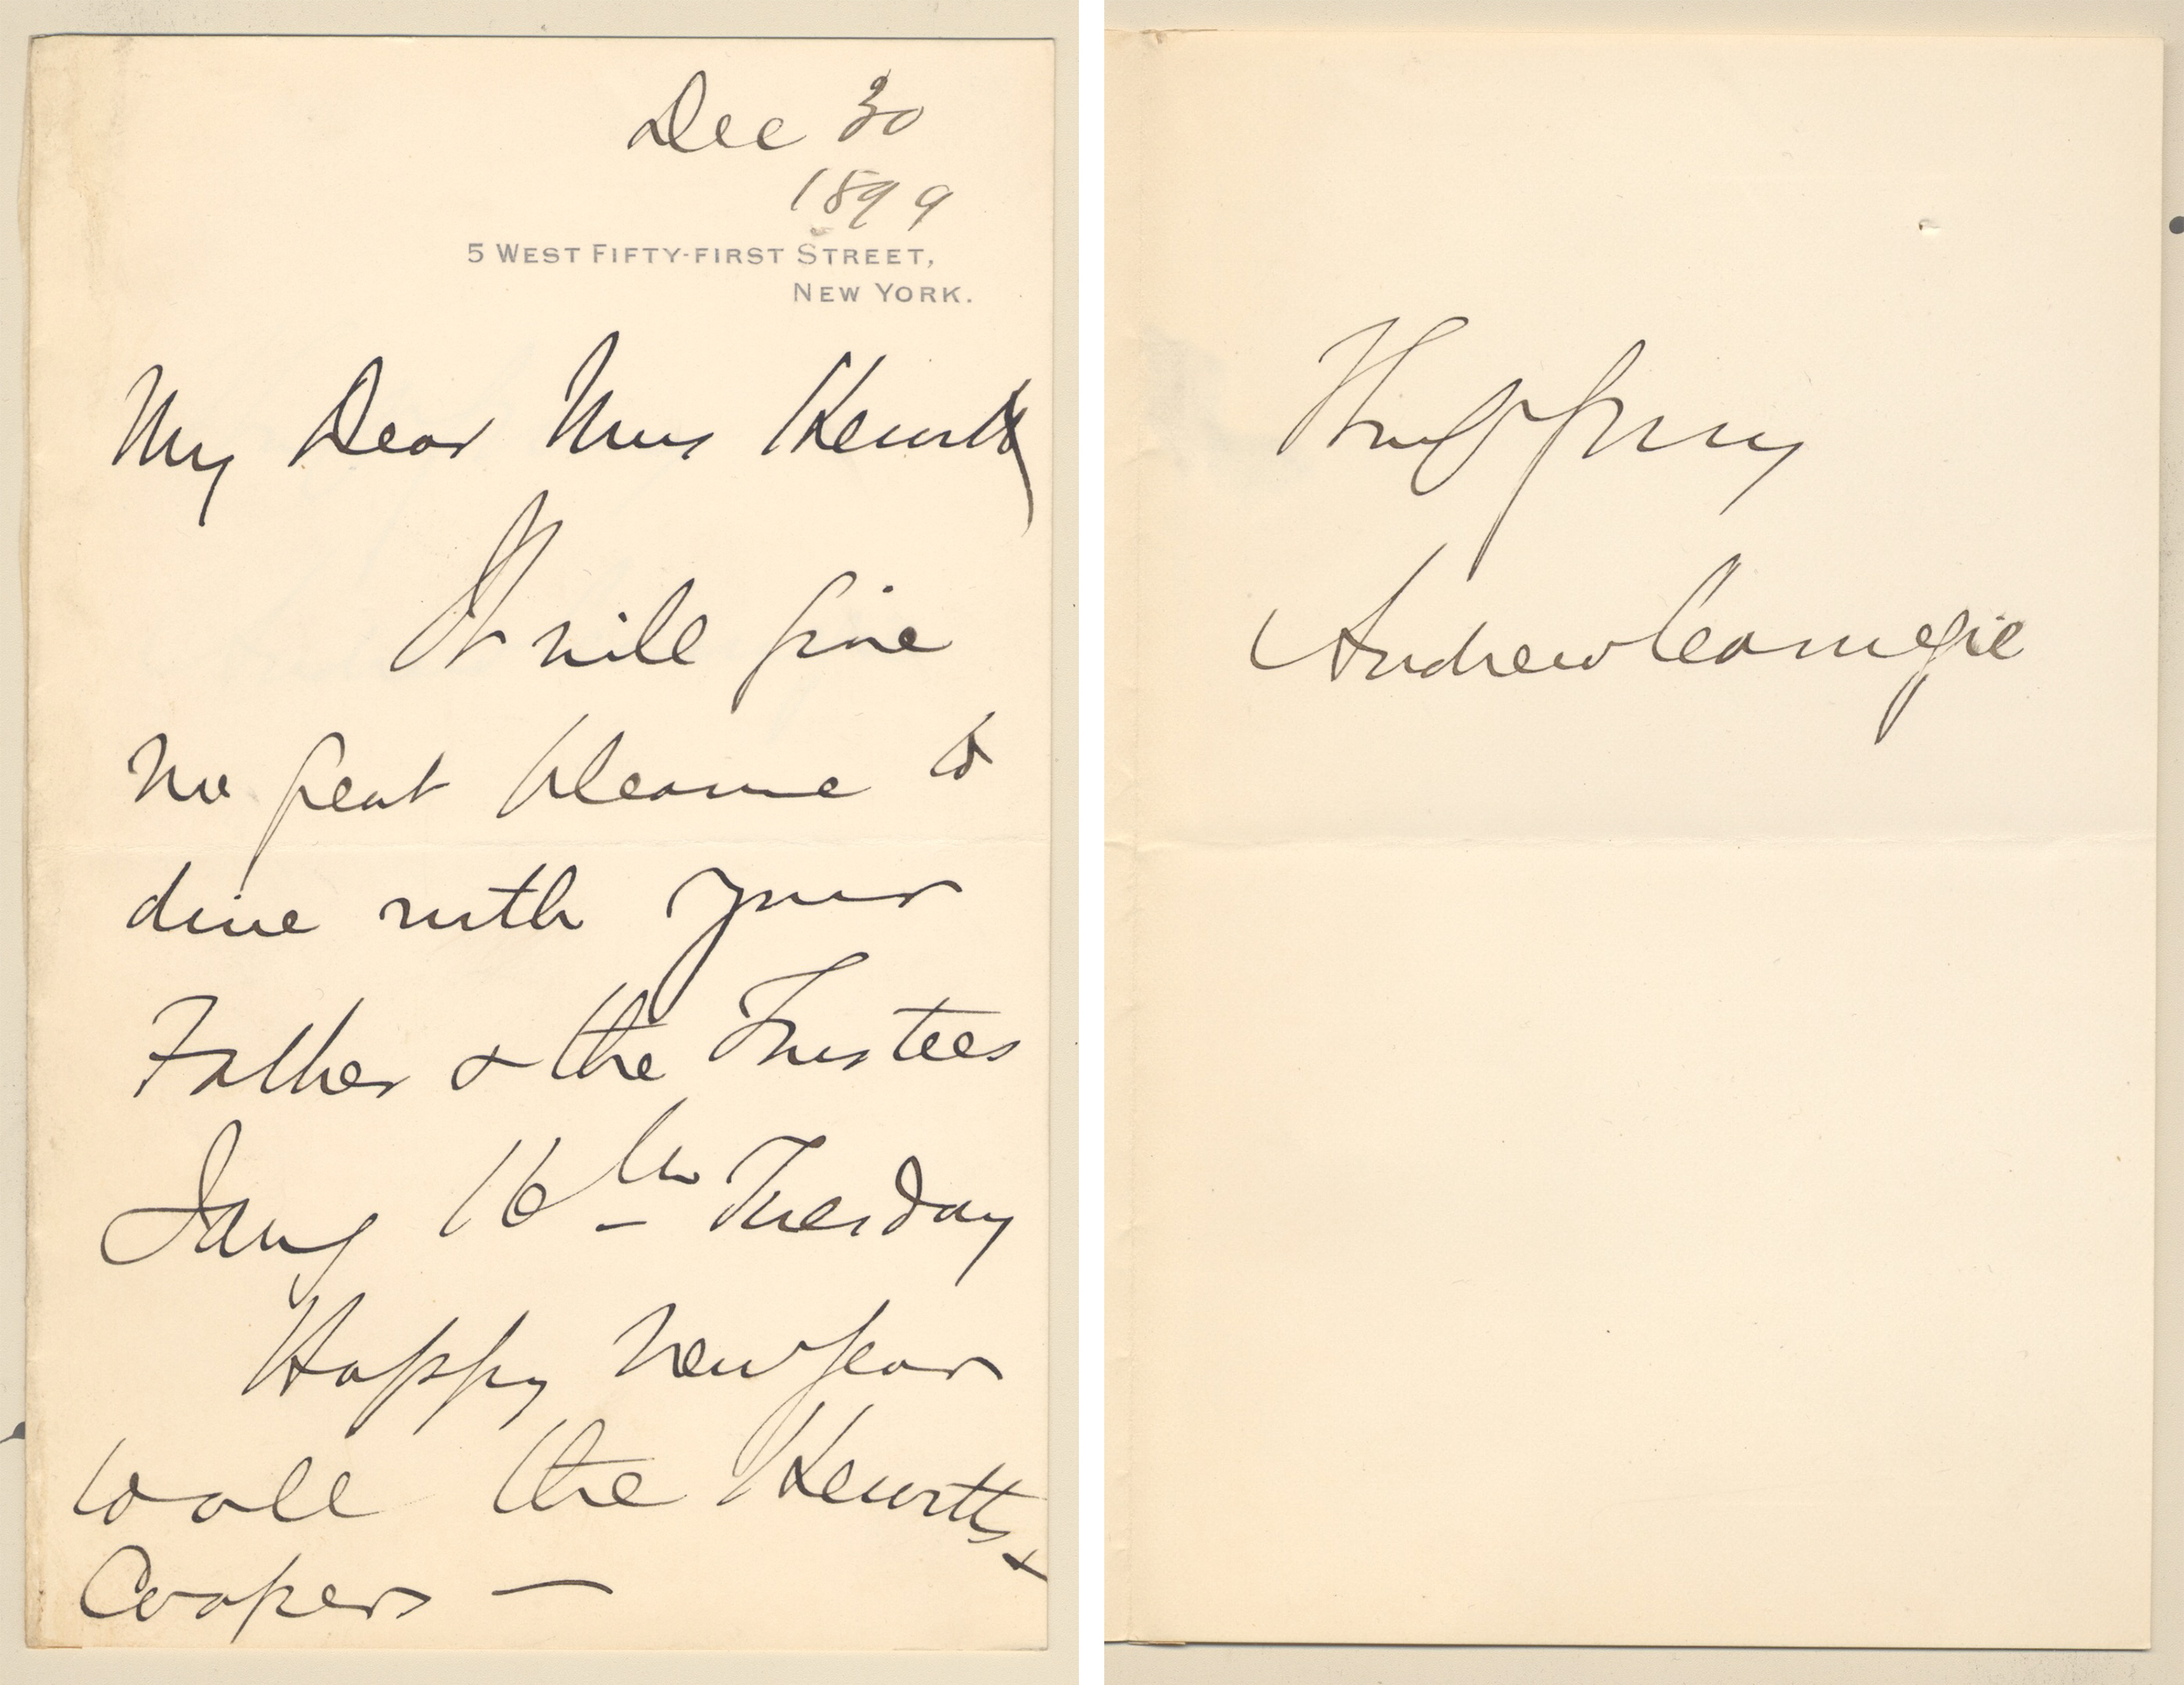 Dec 30
1899
5 WEST FIFTY-FIRST STREET,
NEW YORK.
My Dear Miss Hewitt
It will give
me great pleasure to
dine with your
Father & the Trustees
Jany 16th Tuesday
Happy New Year
to all the Hewitts &
Coopers —
Andrew Carnegie